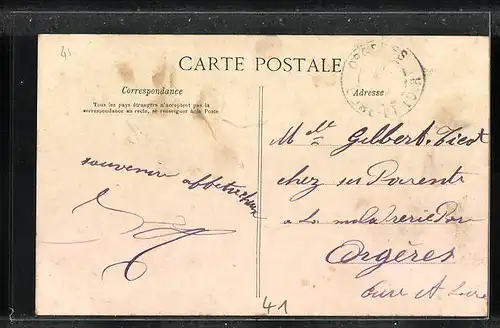 41
CARTE POSTALE
ORGERES
EURE-ET-LOIR
Correspondance
Adresse
Tous les pays étrangers n'acceptent pas la
correspondance au recto, se renseigner à la Poste
Mlle Gilbert
souvenir affectueux
chez ses Parents
a La maladrerie Par
Orgères
Eure et Loire
41